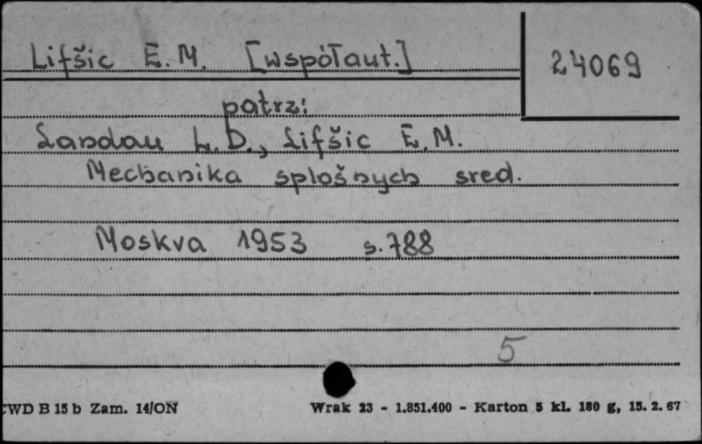 Lifšic E.M. [współaut.]
24069
patrz:
Landau L.D., Lifšic E.M.
Mechanika splošnych sred.
Moskva 1953 s.788
5
CWD B 15 b Zam. 14/ON
Wrak 23 - 1.851.400 - Karton 5 kl. 180 g, 15. 2. 67